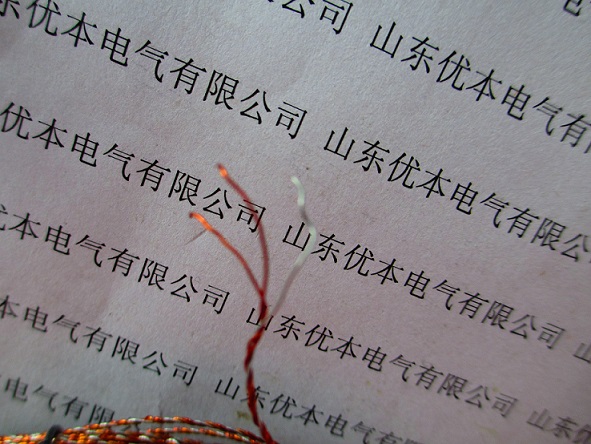 公司 山东优本电气有
东优本电气有限公司 山东优本电气有限公
优本电气有限公司 山东优本电气有限公司
本电气有限公司 山东优本电气有限公司
本电气有限公司 山东优本电气有
电气有限